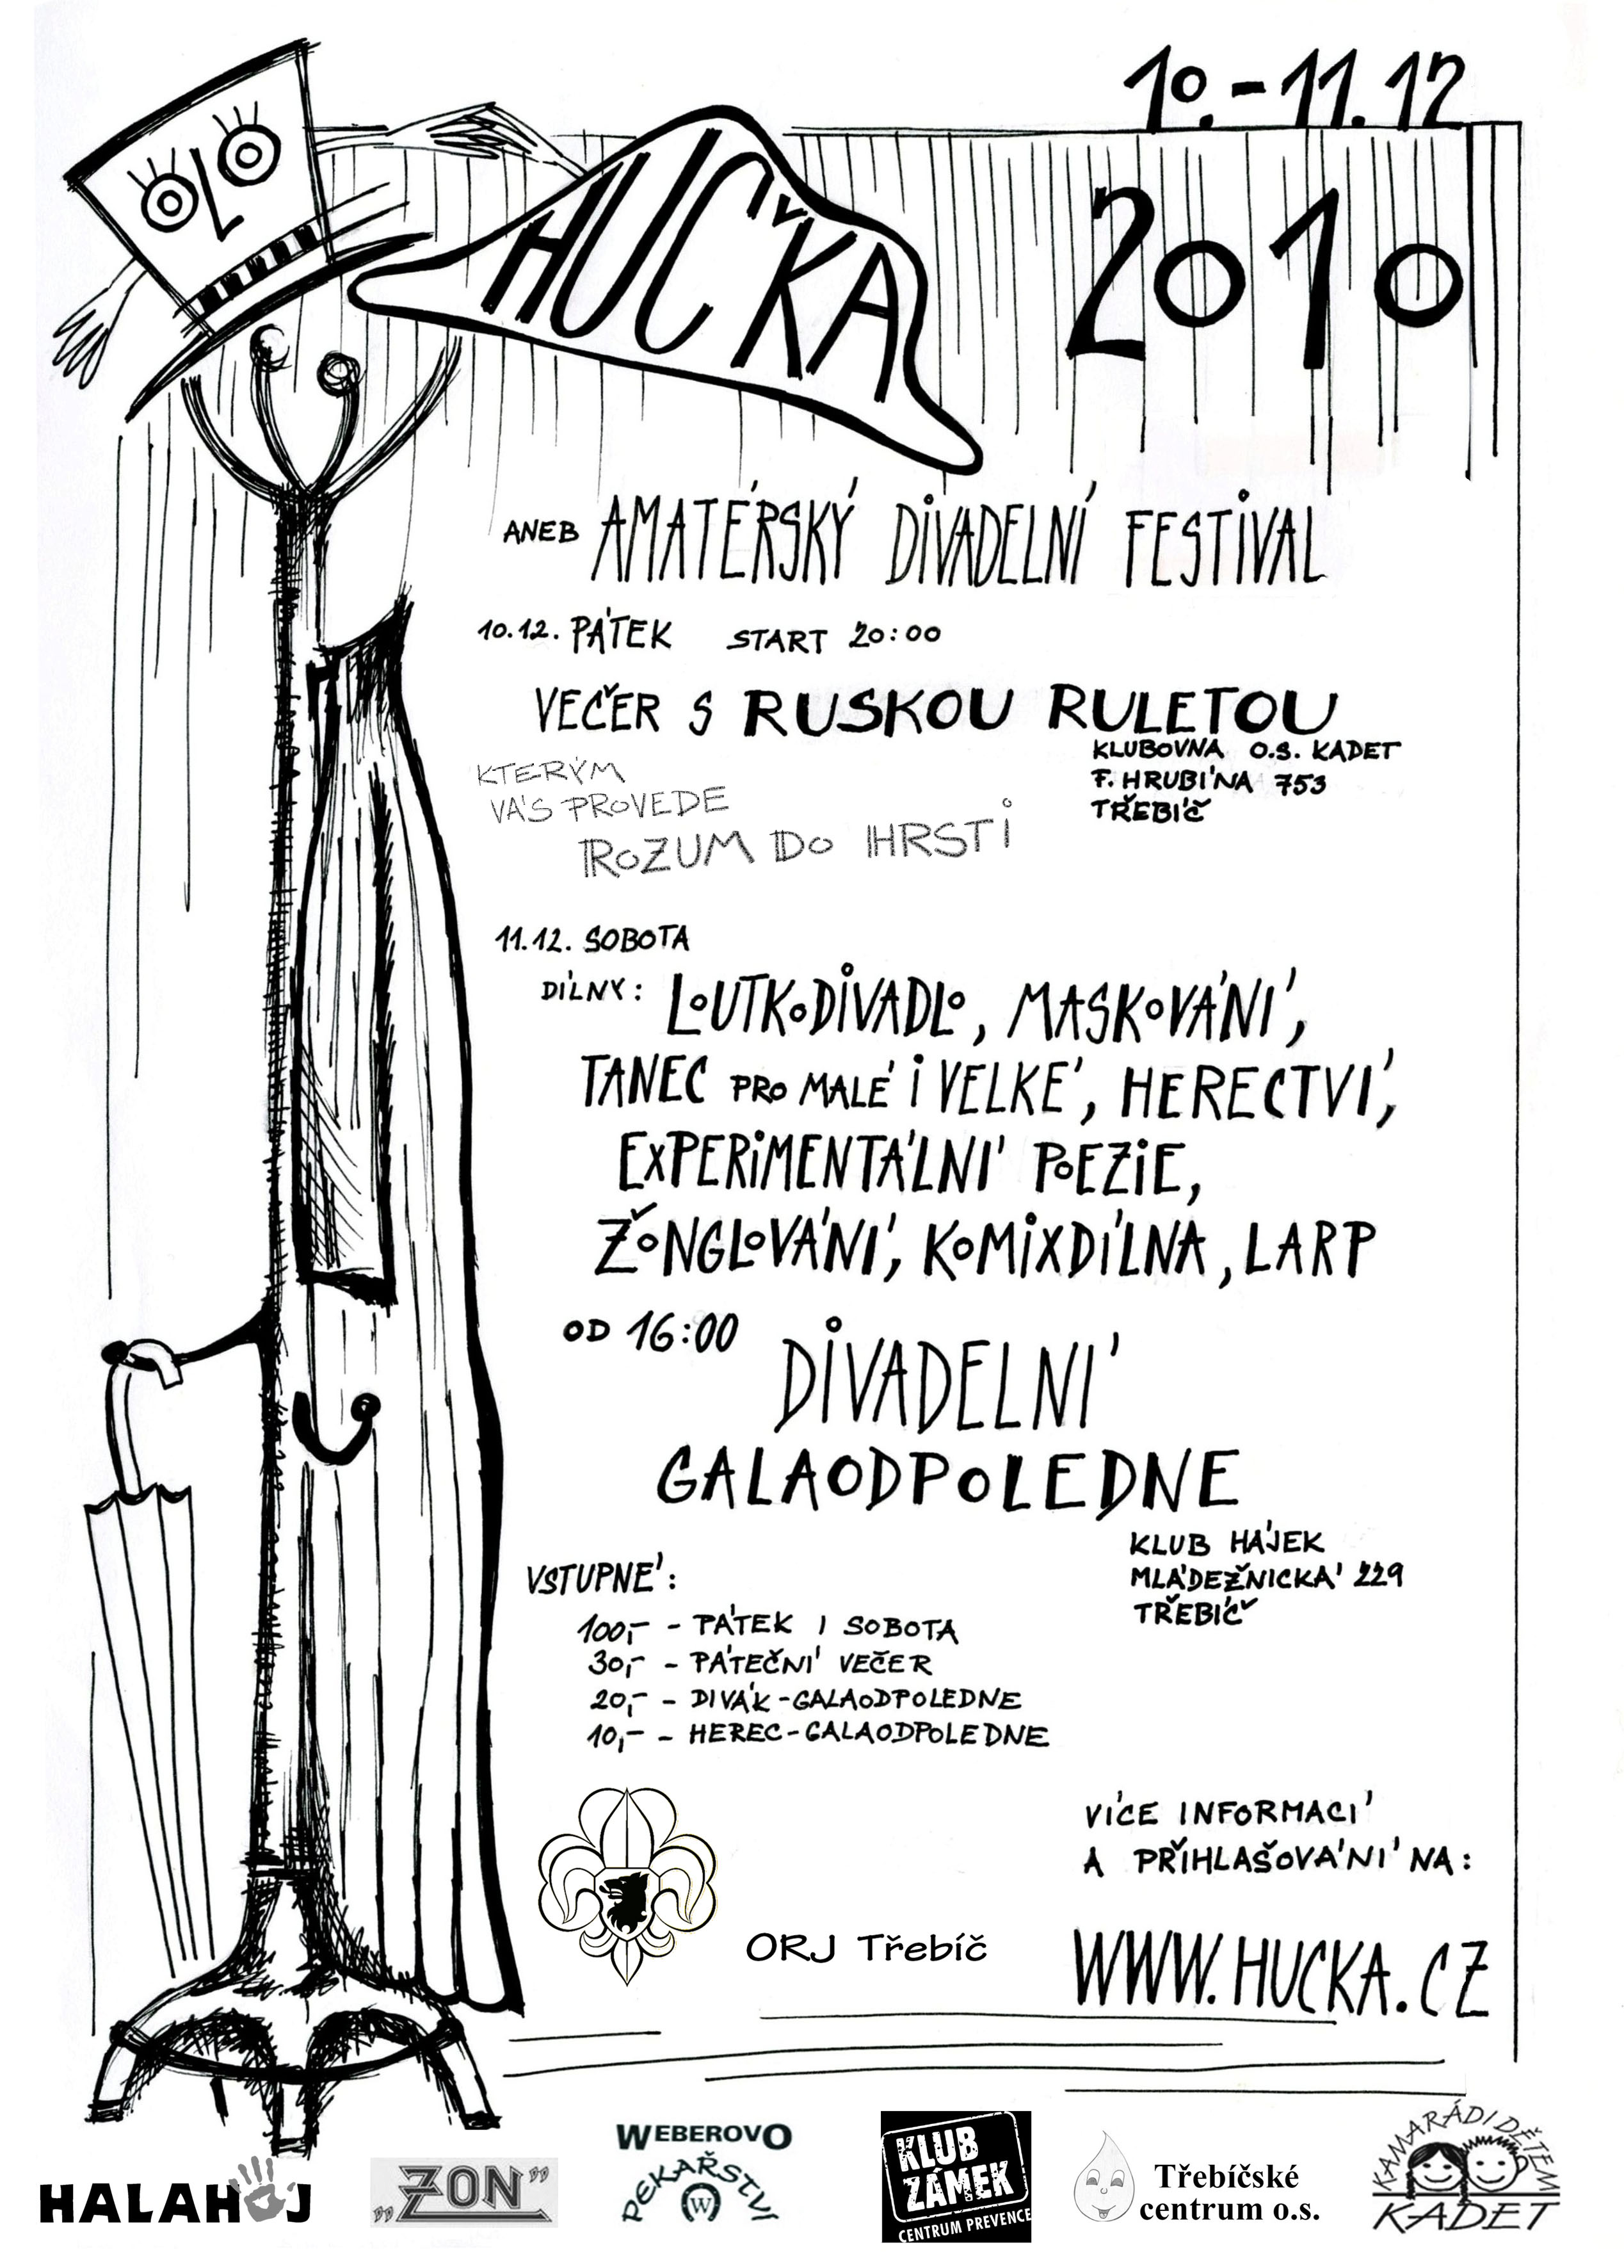 10.-11.12
HUČKA
2010
ANEB AMATÉRSKÝ DIVADELNÍ FESTIVAL
10.12. PÁTEK START 20:00
VEČER S RUSKOU RULETOU
KLUBOVNA O.S. KADET
F. HRUBÍNA 753
TŘEBÍČ
KTERÝM
VÁS PROVEDE
ROZUM DO HRSTI
11.12. SOBOTA
DÍLNY: LOUTKODIVADLO, MASKOVÁNÍ,
TANEC PRO MALÉ I VELKÉ, HERECTVÍ,
EXPERIMENTÁLNÍ POEZIE,
ŽONGLOVÁNÍ, KOMIXDÍLNA, LARP
OD 16:00 DIVADELNÍ
GALAODPOLEDNE
KLUB HÁJEK
MLÁDEŽNICKÁ 229
TŘEBÍČ
VSTUPNÉ:
100,- - PÁTEK I SOBOTA
30,- - PÁTEČNÍ VEČER
20,- - DIVÁK-GALAODPOLEDNE
10,- - HEREC-GALAODPOLEDNE
VÍCE INFORMACÍ
A PŘIHLAŠOVÁNÍ NA:
ORJ Třebíč
WWW.HUCKA.CZ
HALAHOJ
„ZON”
WEBEROVO
PEKAŘSTVÍ
W
KLUB
ZÁMEK
CENTRUM PREVENCE
Třebíčské
centrum o.s.
KAMARÁDI DĚTEM
KADET